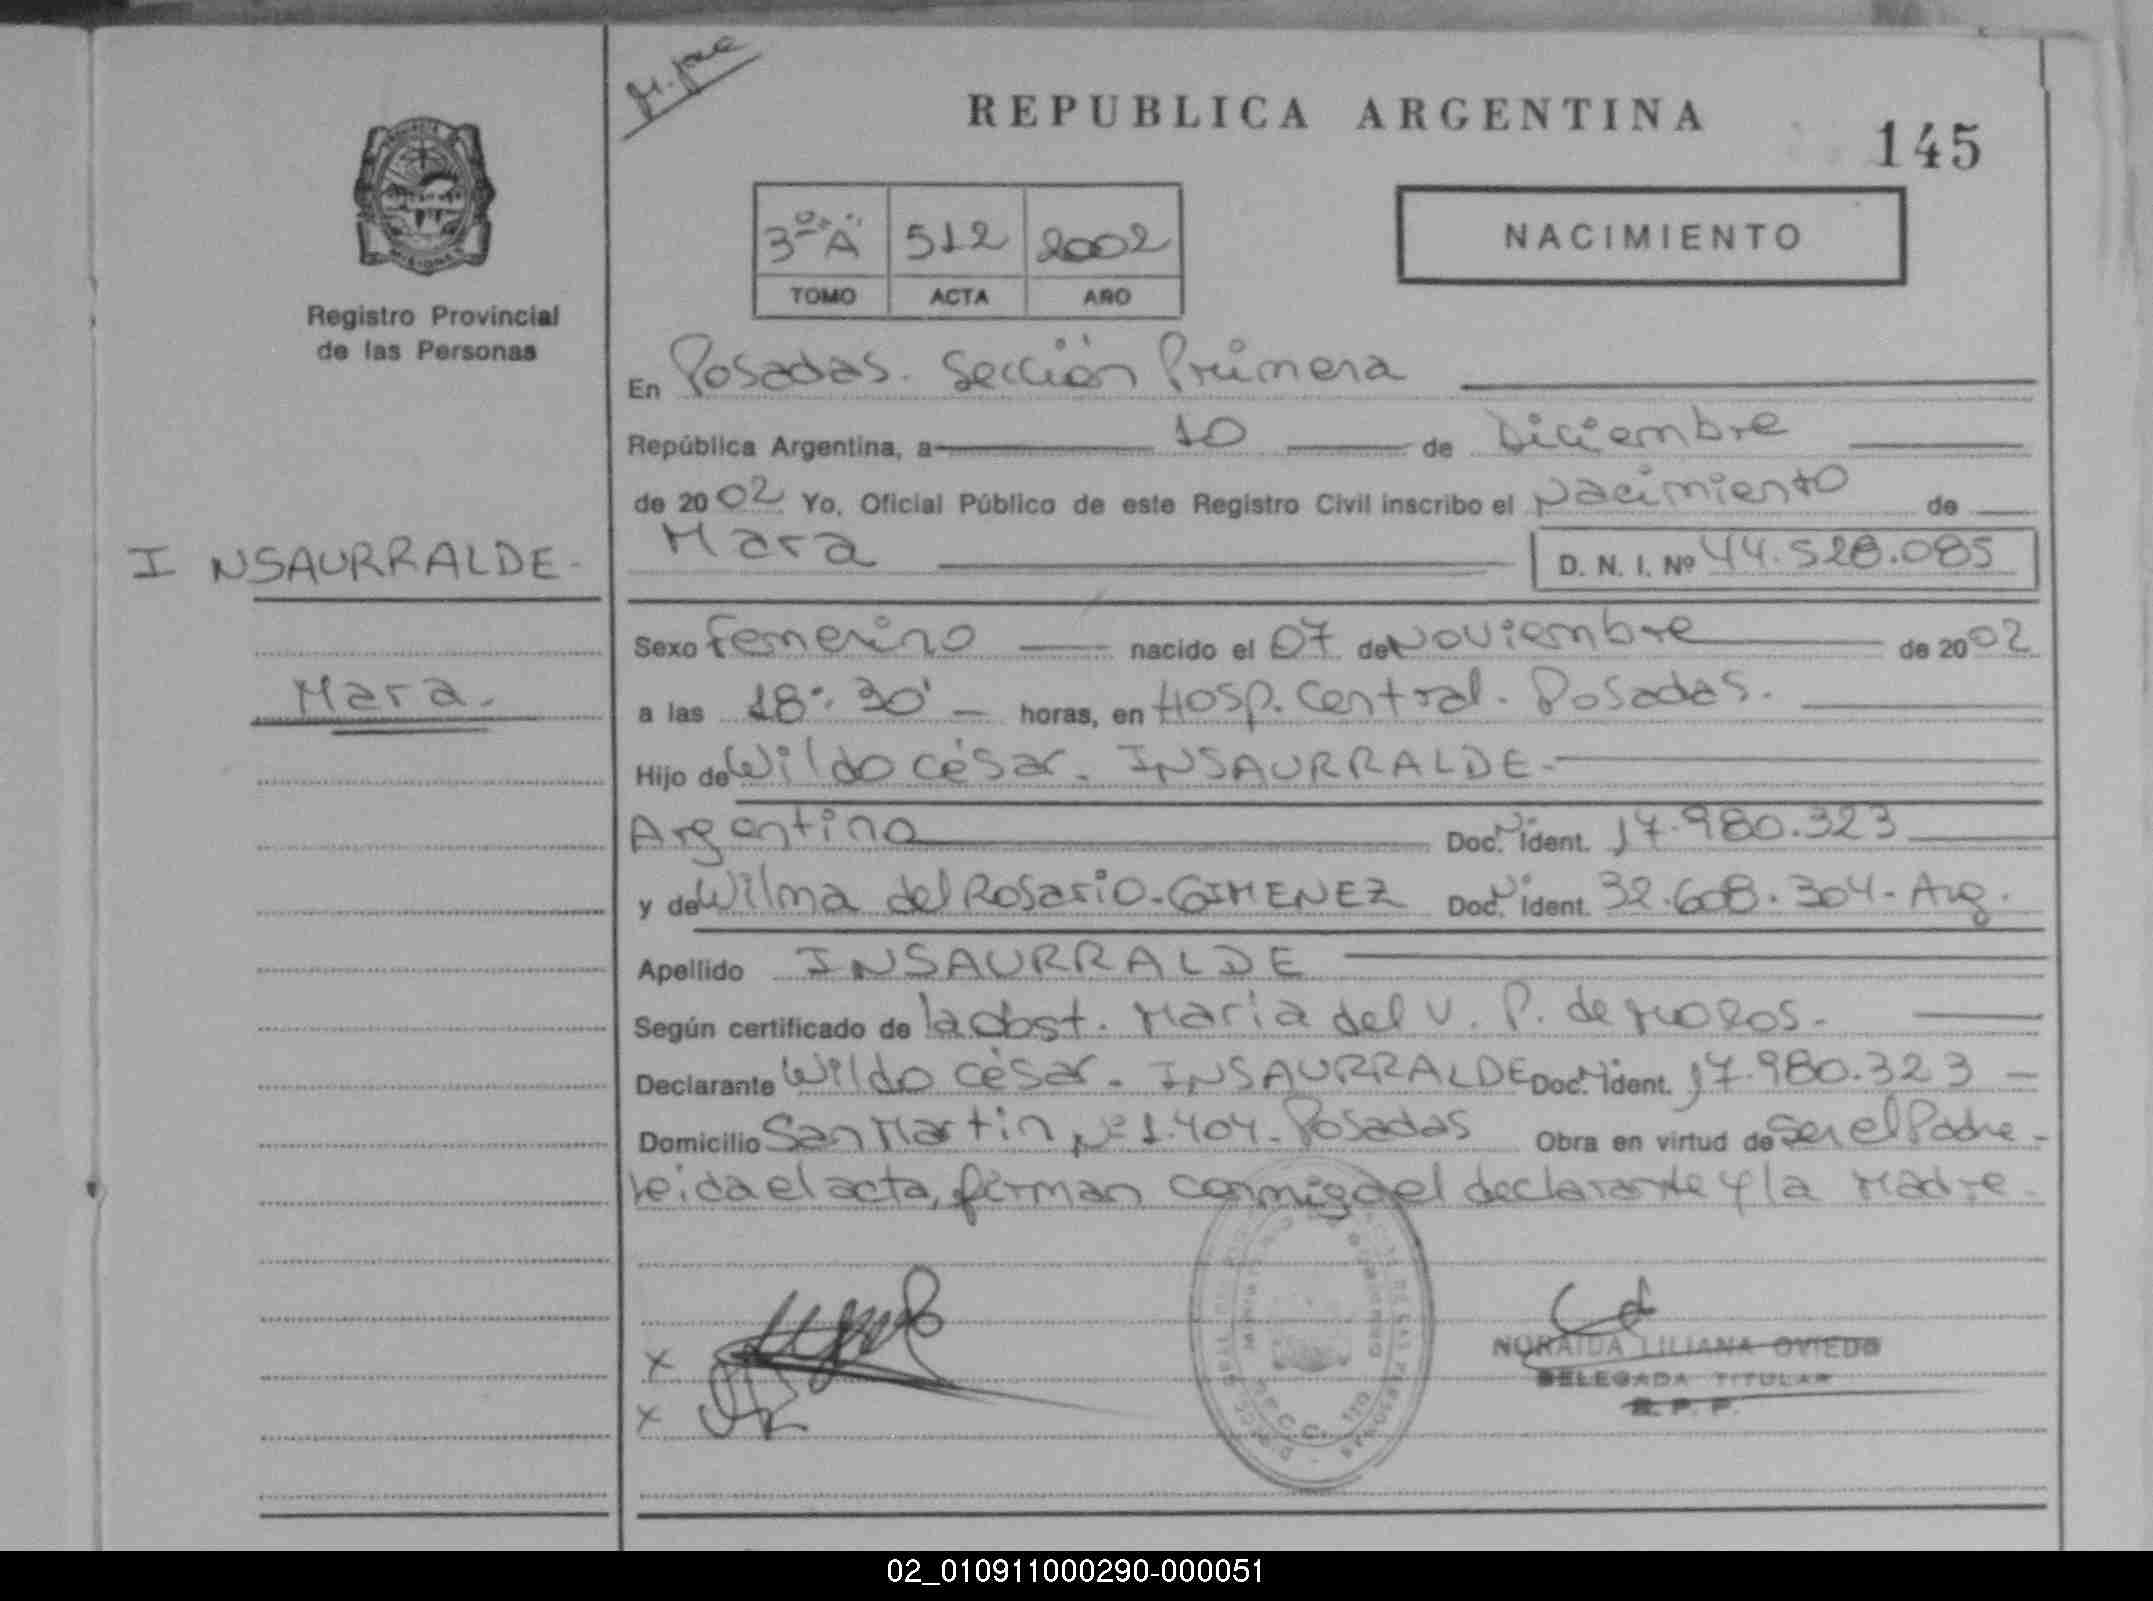 REPUBLICA ARGENTINA
145
NACIMIENTO
3º "A" 512 2002
TOMO ACTA AÑO
Registro Provincial
de las Personas
En Posadas. Sección Primera
República Argentina, a 10 de Diciembre
de 2002 Yo, Oficial Público de este Registro Civil inscribo el Nacimiento de
Mara D. N. I. Nº 44.528.085
INSAURRALDE.
Mara.
Sexo Femenino nacido el 07 de Noviembre de 2002
a las 18:30' horas, en Hosp. Central. Posadas.
Hijo de Wildo César. INSAURRALDE.
Argentino Doc. Nº ident. 17.980.323
y de Wilma del Rosario. GIMENEZ Doc. Nº ident. 32.608.304. Arg.
Apellido INSAURRALDE
Según certificado de la obst. Maria del V. P. de Moros.
Declarante Wildo César. INSAURRALDE Doc. Nº ident. 17.980.323
Domicilio San Martin Nº 1.404. Posadas Obra en virtud de Ser el Padre
leida el acta, firman conmigo el declarante y la Madre.
x
x
NORAIDA LILIANA OVIEDO
DELEGADA TITULAR
R. P. P.
02_010911000290-000051